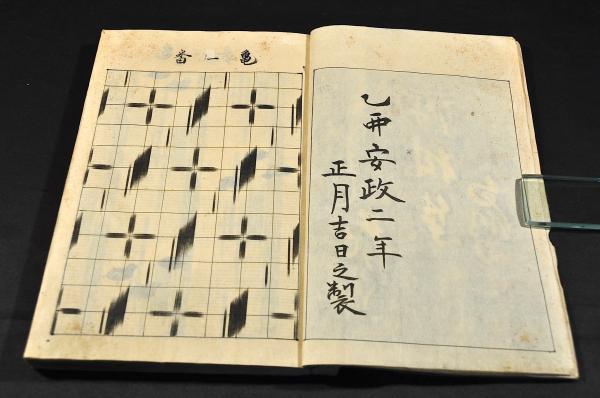 乙丣安政二年
正月吉日之製
亀一番